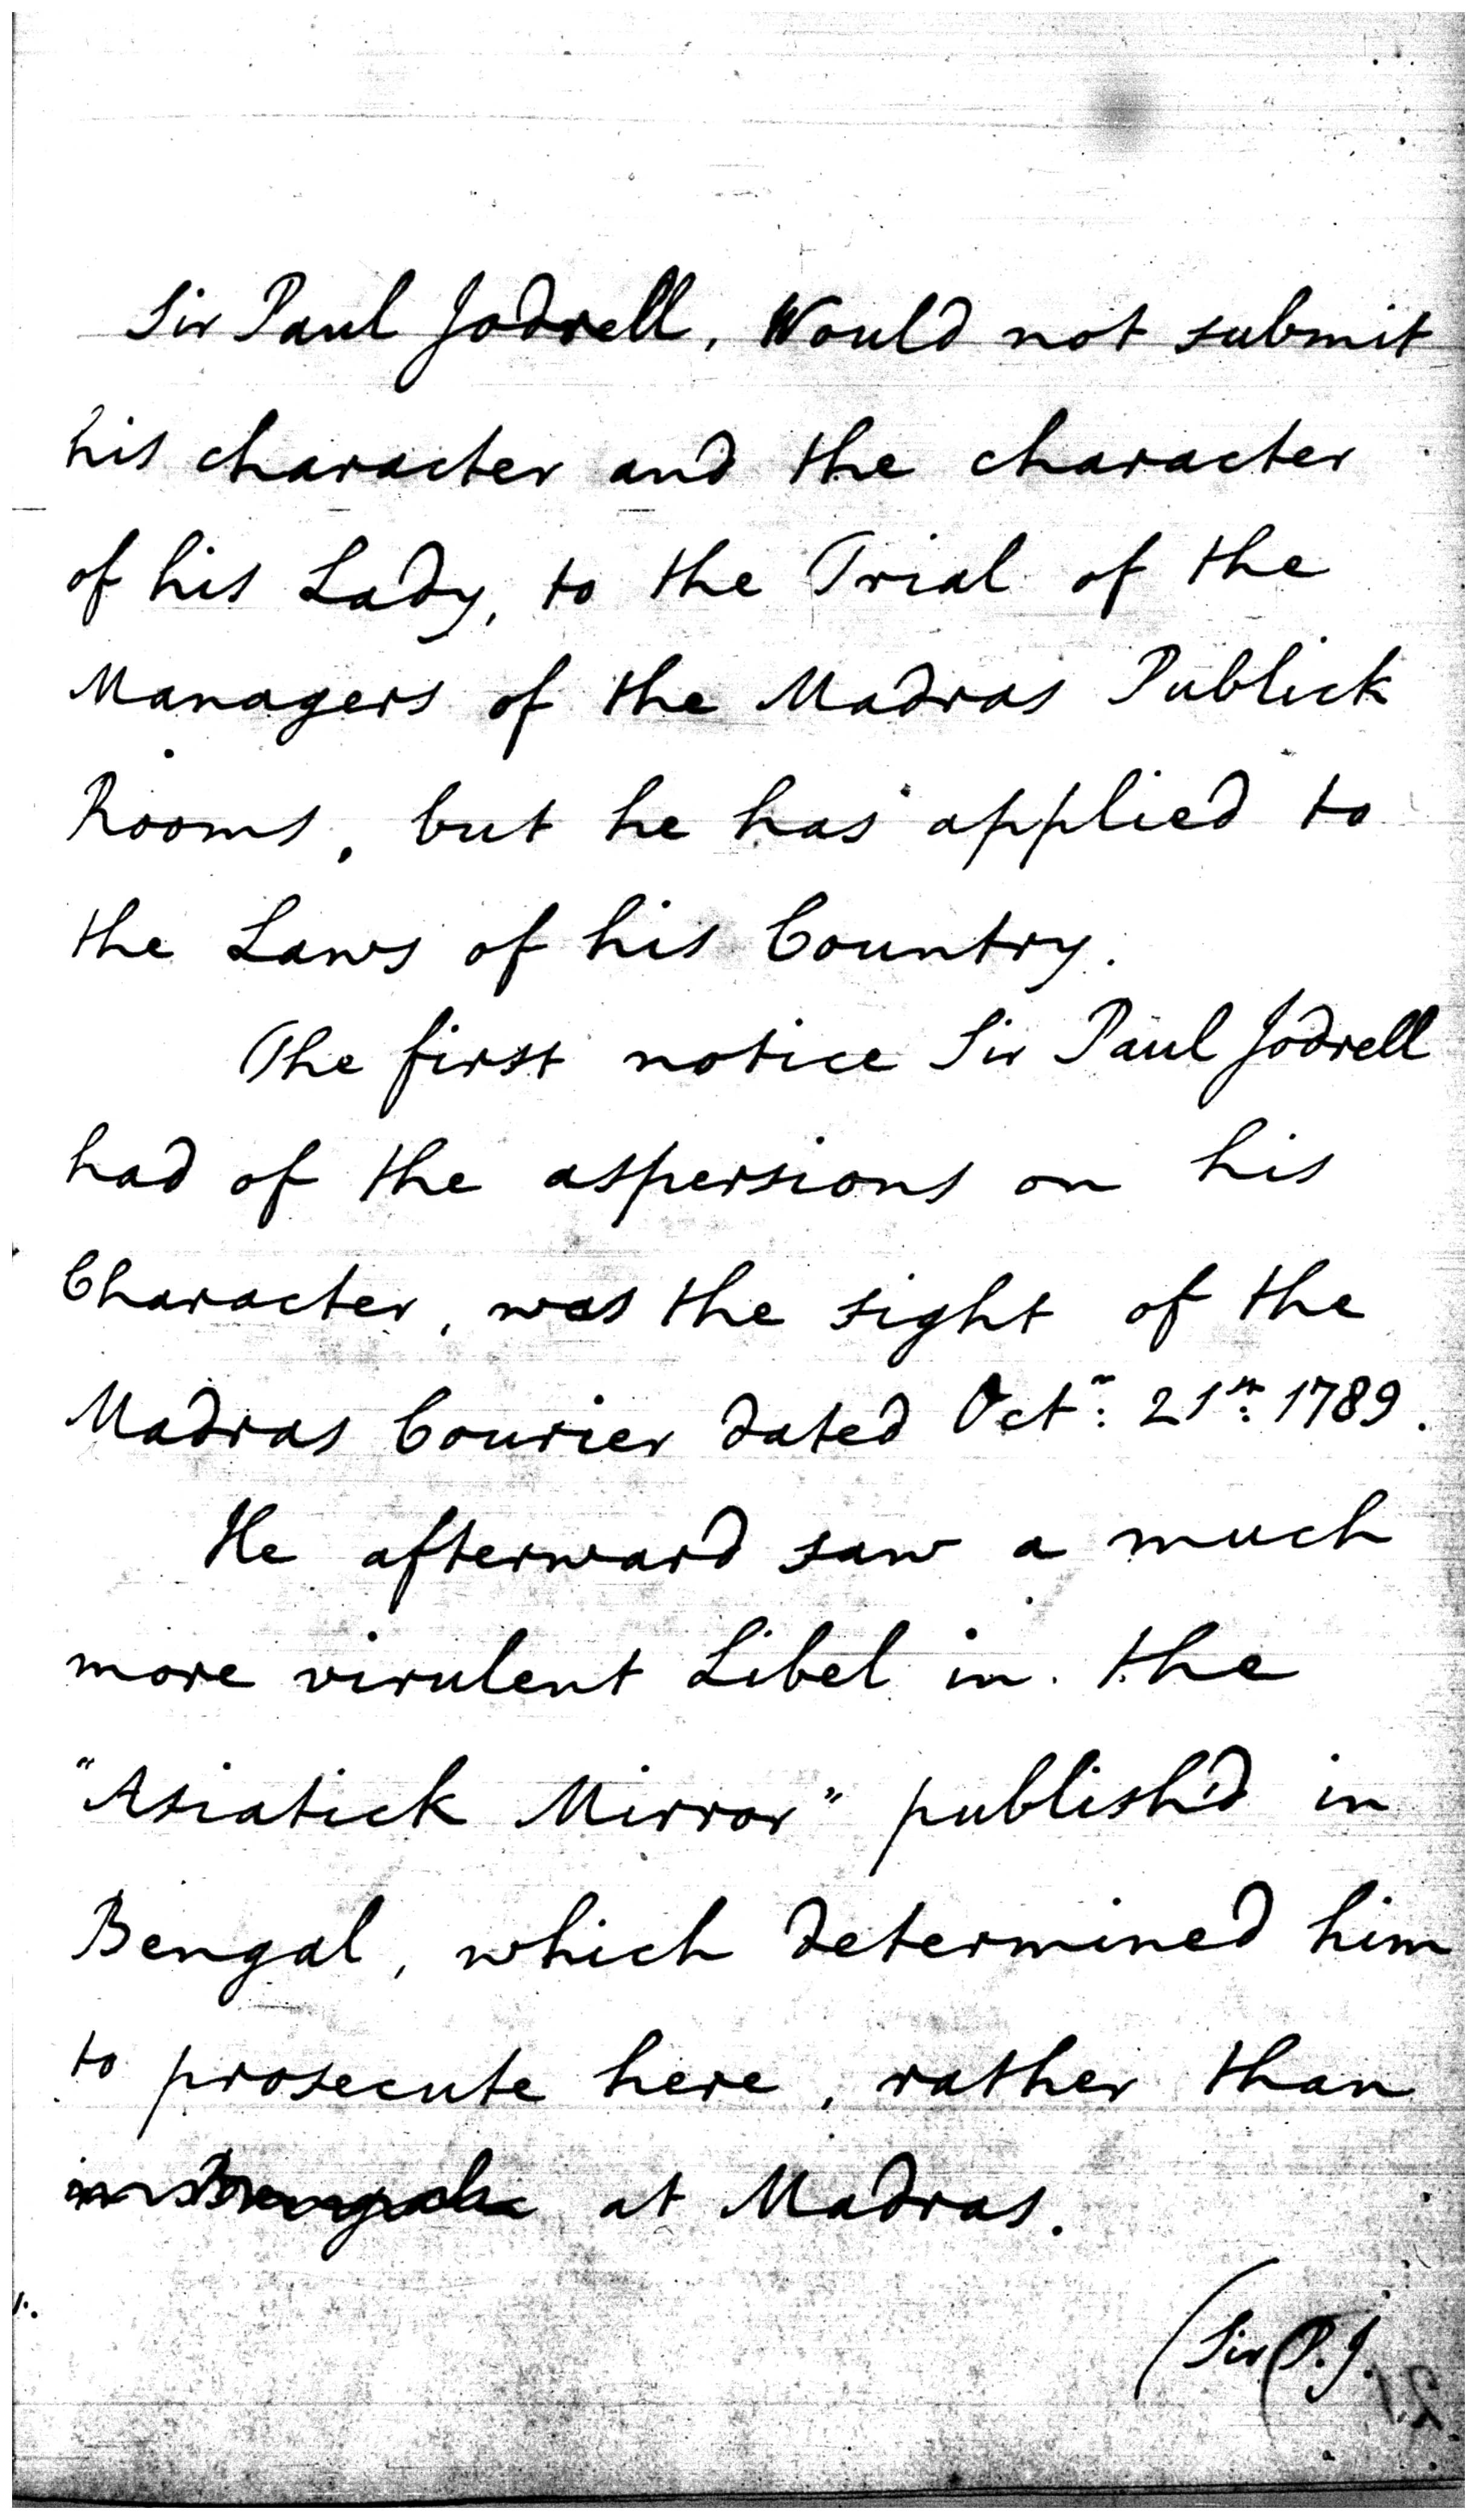 Sir Paul Jodrell, Would not submit
his character and the character
of his Lady, to the Trial of the
Managers of the Madras Publick
Rooms, but he has applied to
the Laws of his Country.
The first notice Sir Paul Jodrell
had of the aspersions on his
Character, was the sight of the
Madras Courier dated Octr: 21st: 1789.
He afterward saw a much
more virulent Libel in the
"Asiatick Mirror" publish'd in
Bengal, which determined him
to prosecute here, rather than
in Bengal at Madras.
(Sir P. J.